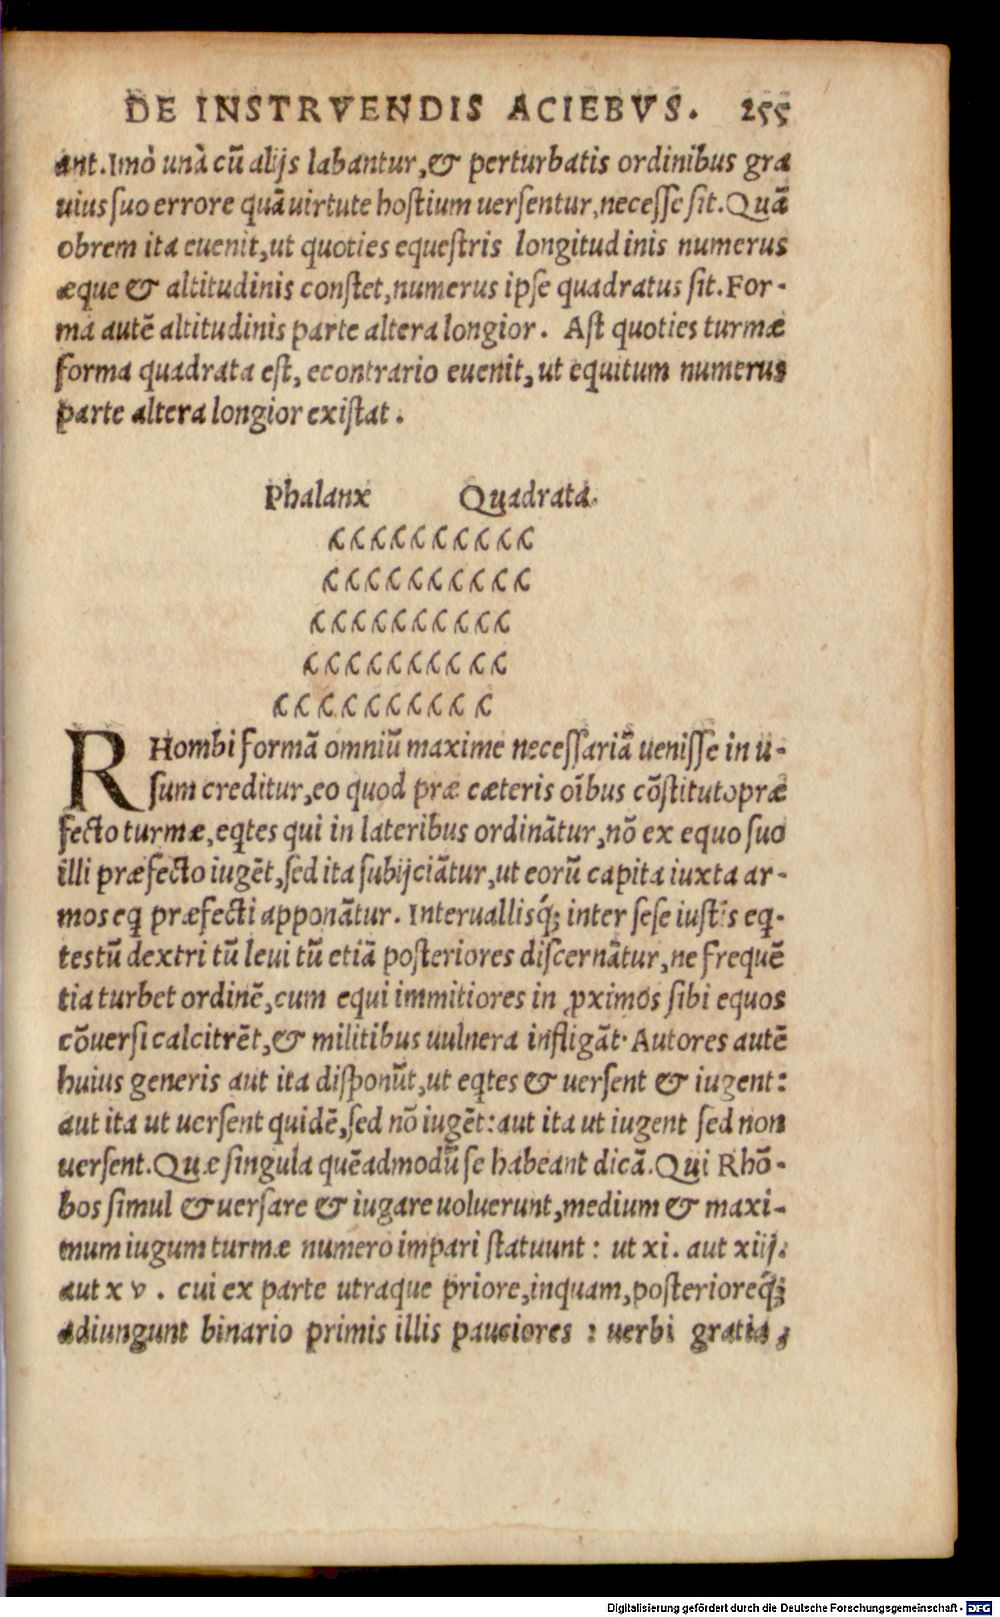 DE INSTRVENDIS ACIEBVS. 255
ant. Imò unà cū alijs labantur, & perturbatis ordinibus gra
uius suo errore quā uirtute hostium uersentur, necesse sit. Quā
obrem ita euenit, ut quoties equestris longitudinis numerus
æque & altitudinis constet, numerus ipse quadratus sit. For-
ma autē altitudinis parte altera longior. Ast quoties turmæ
forma quadrata est, econtrario euenit, ut equitum numerus
parte altera longior existat.
Phalanx Quadrata.
RHombi formā omniū maxime necessariā uenisse in u-
sum creditur, eo quod præ cæteris oībus cōstituto præ
fecto turmæ, eqtes qui in lateribus ordinātur, nō ex equo suo
illi præfecto iugēt, sed ita subijciātur, ut eorū capita iuxta ar-
mos eq præfecti apponātur. Interuallisq́; inter sese iustis eq-
tes tū dextri tū leui tū etiā posteriores discernātur, ne frequē
tia turbet ordinē, cum equi immitiores in ꝓximos sibi equos
cōuersi calcitrēt, & militibus uulnera infligāt. Autores autē
huius generis aut ita disponūt, ut eqtes & uersent & iugent:
aut ita ut uersent quidē, sed nō iugēt: aut ita ut iugent sed non
uersent. Quæ singula quēadmodū se habeant dicā. Qui Rhō-
bos simul & uersare & iugare uoluerunt, medium & maxi-
mum iugum turmæ numero impari statuunt: ut xi. aut xiij.
aut x v. cui ex parte utraque priore, inquam, posterioreq́;
adiungunt binario primis illis pauciores: uerbi gratia,